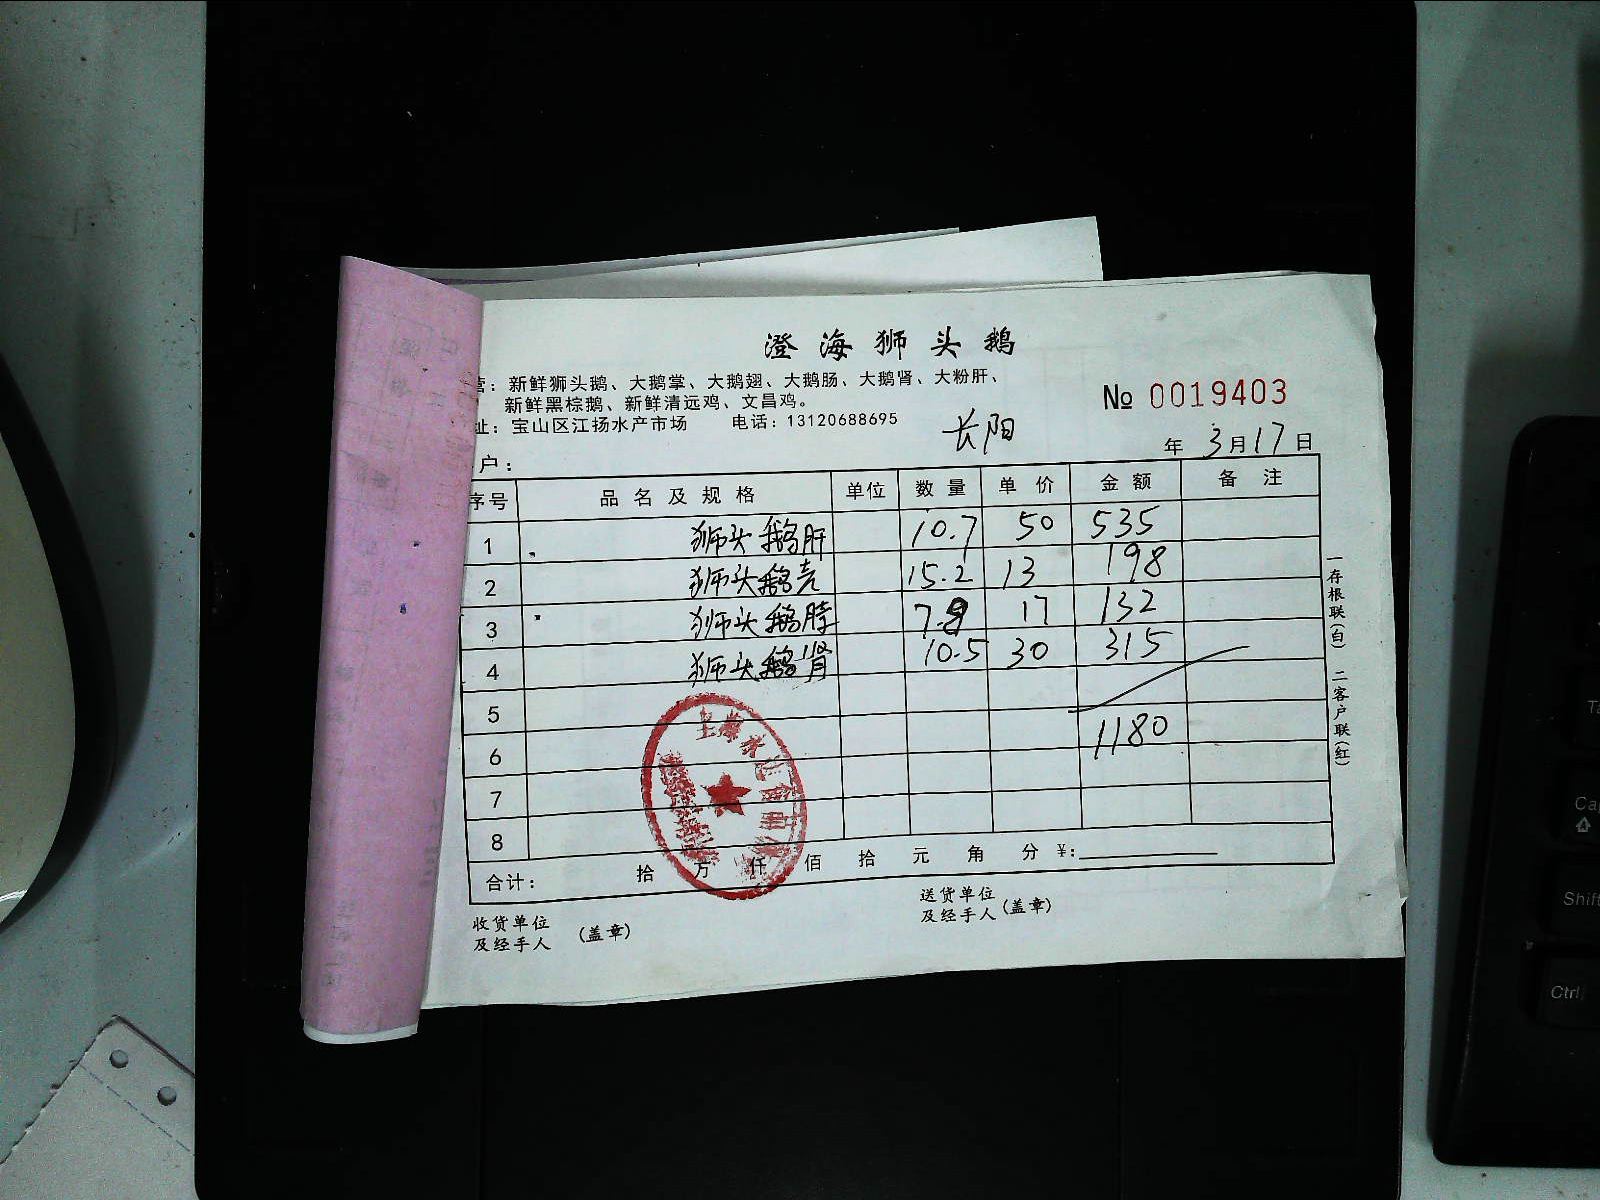 澄海狮头鹅
营：新鲜狮头鹅、大鹅掌、大鹅翅、大鹅肠、大鹅肾、大粉肝、
新鲜黑棕鹅、新鲜清远鸡、文昌鸡。
址：宝山区江扬水产市场 电话：13120688695
№ 0019403
长阳
户：
年 3月17日
序号 品名及规格 单位 数量 单价 金额 备注
1 狮头鹅肝 10.7 50 535
2 狮头鹅壳 15.2 13 198
3 狮头鹅 7.8 17 132
4 狮头鹅肾 10.5 30 315
5
6 1180
7
8
合计： 拾 万 仟 佰 拾 元 角 分 ¥：
收货单位
及经手人 （盖章）
送货单位
及经手人（盖章）
一存根联（白） 二客户联（红）
Caps
Shift
Ctrl